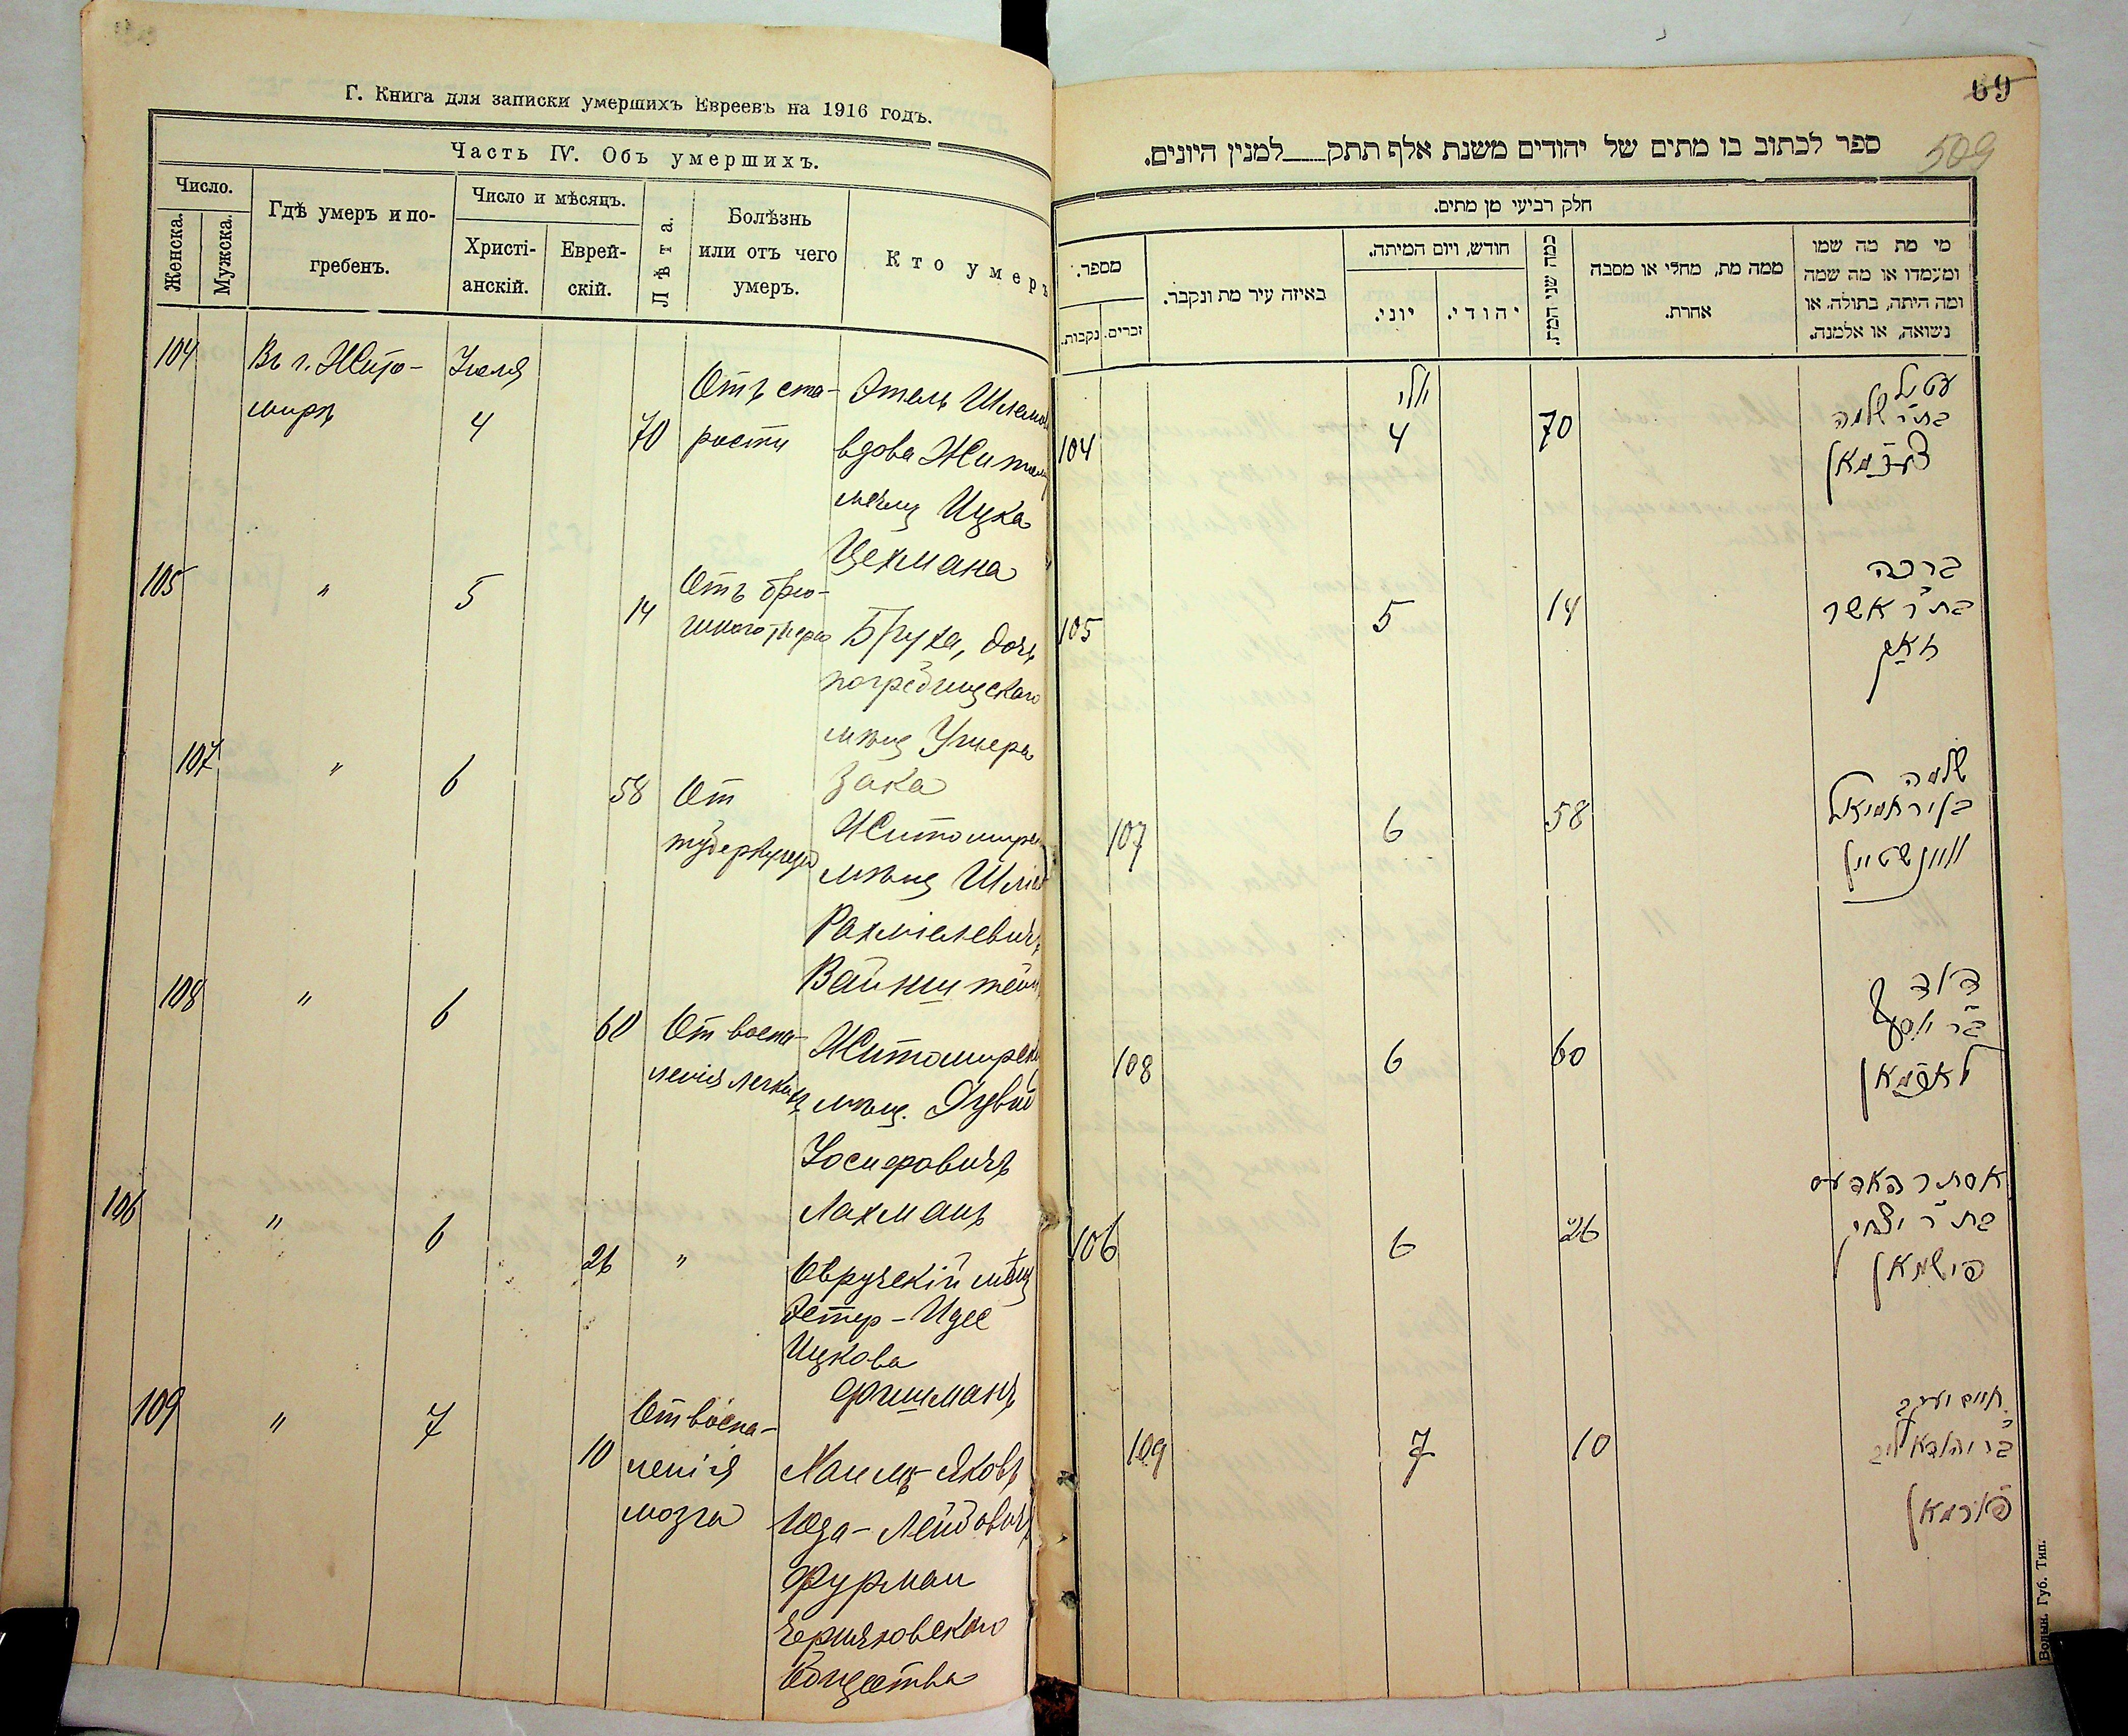 Г. Книга для записки умершихъ Евреевъ на 1916 годъ.
Часть IV. Объ умершихъ.
Число.
Женска.
Мужска.
Гдѣ умеръ и по-
гребенъ.
Число и мѣсяцъ.
Христі-
анскій.
Еврей-
скій.
Лѣта.
Болѣзнь
или отъ чего
умеръ.
Кто умеръ
104
Въ г. Жито-
мирѣ
Іюля
4
70
Отъ ста-
рости
Этель Шлемов
вдова Житом
Ицка
Цехмана
105
"
5
14
Отъ брю-
шного тифа
Бруха, дочь
погребищскаго
мѣщ Ушера
Зака
107
"
6
58
От
туберкулеза
Житомирс
мѣщ
Рахміелевичъ
Вайнштейн
108
"
6
60
От воспа-
ленія легких
Житомирск
мѣщ. Дувид
Іосифовичъ
Лахманъ
106
"
6
26
"
Овручскій мѣщ
Эстер-Идес
Ицкова
Фишманъ
109
"
7
10
От воспа-
ленія
мозга
Хаимъ-Яковъ
Юда-Лейбовичъ
Фурман
Черняховскаго
Общества
69
509
ספר לכתוב בו מתים של יהודים משנת אלף תתק___למנין היונים.
חלק רביעי מן מתים.
מספר.
נקבות.
זכרים.
באיזה עיר מת ונקבר.
חודש, ויום המיתה.
יוני.
יהודי.
כמה שני המת.
ממה מת, מחלי או מסבה
אחרת.
מי מת מה שמו
ומעמדו או מה שמה
ומה היתה, בתולה, או
נשואה, או אלמנה.
104
יולי
4
70
עטיל
בת ר' שלמה
צעכמאן
105
5
14
ברכה
בת ר' אשר
זאק
107
6
58
שלמה
בן ירחמיאל
וויינשטיין
108
6
60
דוד
בר יוסף
לאכמאן
106
6
26
אסתר
בת ר' יצחק
פישמאן
109
7
10
חיים יעקב
בר יהודא ליב
פורמאן
Волын. Губ. Тип.